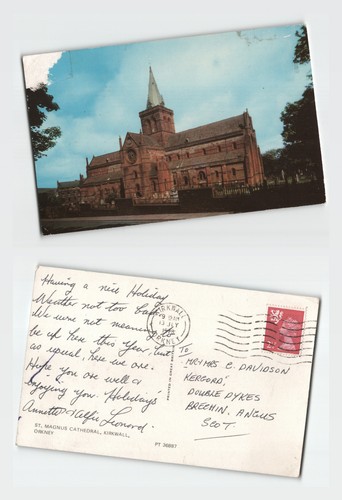 Having a nice Holiday
Weather not too bad.
We were not meaning to
be up here this year, but
as usual, here we are.
Hope you are well &
enjoying your Holidays
Annette & Alfie Leonard.
ST. MAGNUS CATHEDRAL, KIRKWALL,
ORKNEY
PT 36897
KIRKWALL
ORKNEY
TO
MR & MRS C. DAVIDSON
KERGORD,
DOUBLE DYKES
BRECHIN. ANGUS
SCOT.